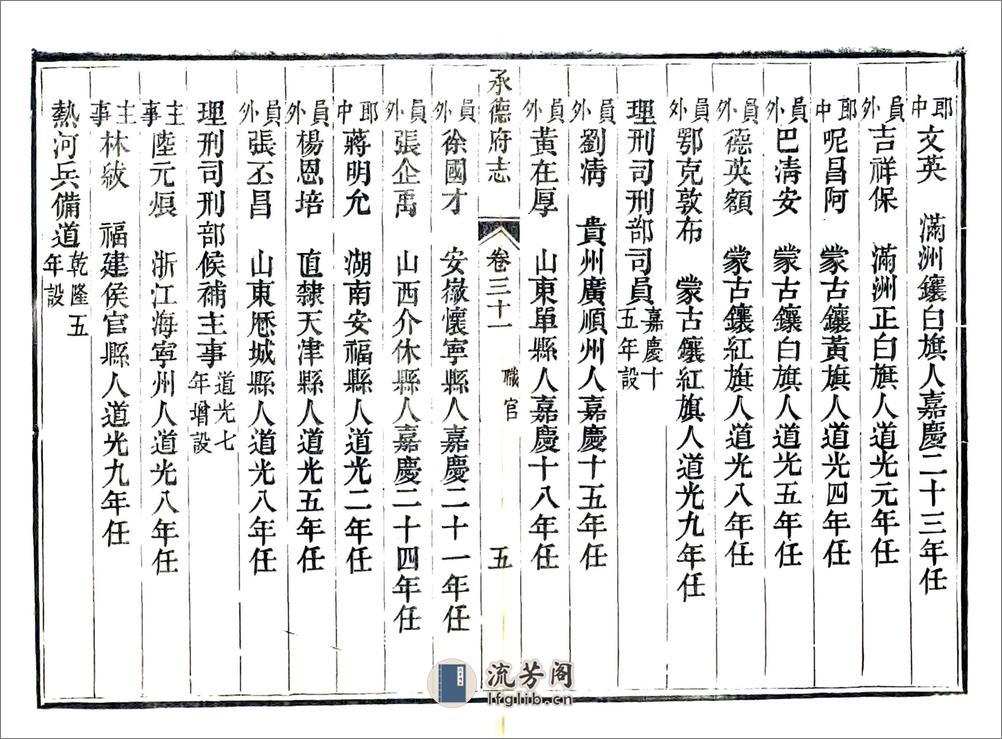 郎中文英　滿洲鑲白旗人嘉慶二十三年任
員外吉祥保　滿洲正白旗人道光元年任
郎中呢昌阿　蒙古鑲黃旗人道光四年任
員外巴淸安　蒙古鑲白旗人道光五年任
員外德英額　蒙古鑲紅旗人道光八年任
員外鄂克敦布　蒙古鑲紅旗人道光九年任
理刑司刑部司員嘉慶十五年設
員外劉淸　貴州廣順州人嘉慶十五年任
員外黃在厚　山東單縣人嘉慶十八年任
承德府志　卷三十一　職官　五
員外徐國才　安徽懷寧縣人嘉慶二十一年任
員外張企禹　山西介休縣人嘉慶二十四年任
郎中蔣明允　湖南安福縣人道光二年任
員外楊恩培　直隸天津縣人道光五年任
員外張丕昌　山東歷城縣人道光八年任
理刑司刑部候補主事道光七年增設
主事陸元烺　浙江海寧州人道光八年任
主事林紱　福建侯官縣人道光九年任
熱河兵備道乾隆五年設
流芳阁
lfglib.cn